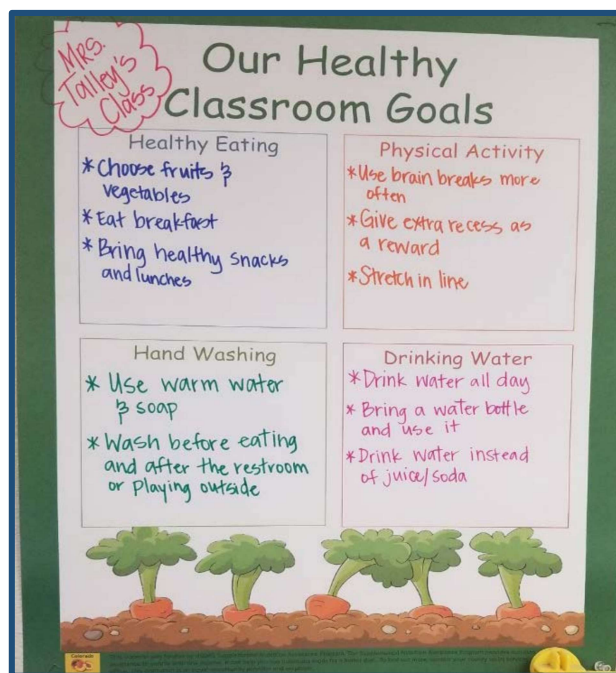 Mrs.
Talley's
Class
Our Healthy
Classroom Goals
Healthy Eating
* Choose fruits &
vegetables
* Eat breakfast
* Bring healthy snacks
and lunches
Physical Activity
* Use brain breaks more
often
* Give extra recess as
a reward
* Stretch in line
Hand Washing
* Use warm water
& soap
* Wash before eating
and after the restroom
or Playing outside
Drinking Water
* Drink water all day
* Bring a water bottle
and use it
* Drink water instead
of juice/soda